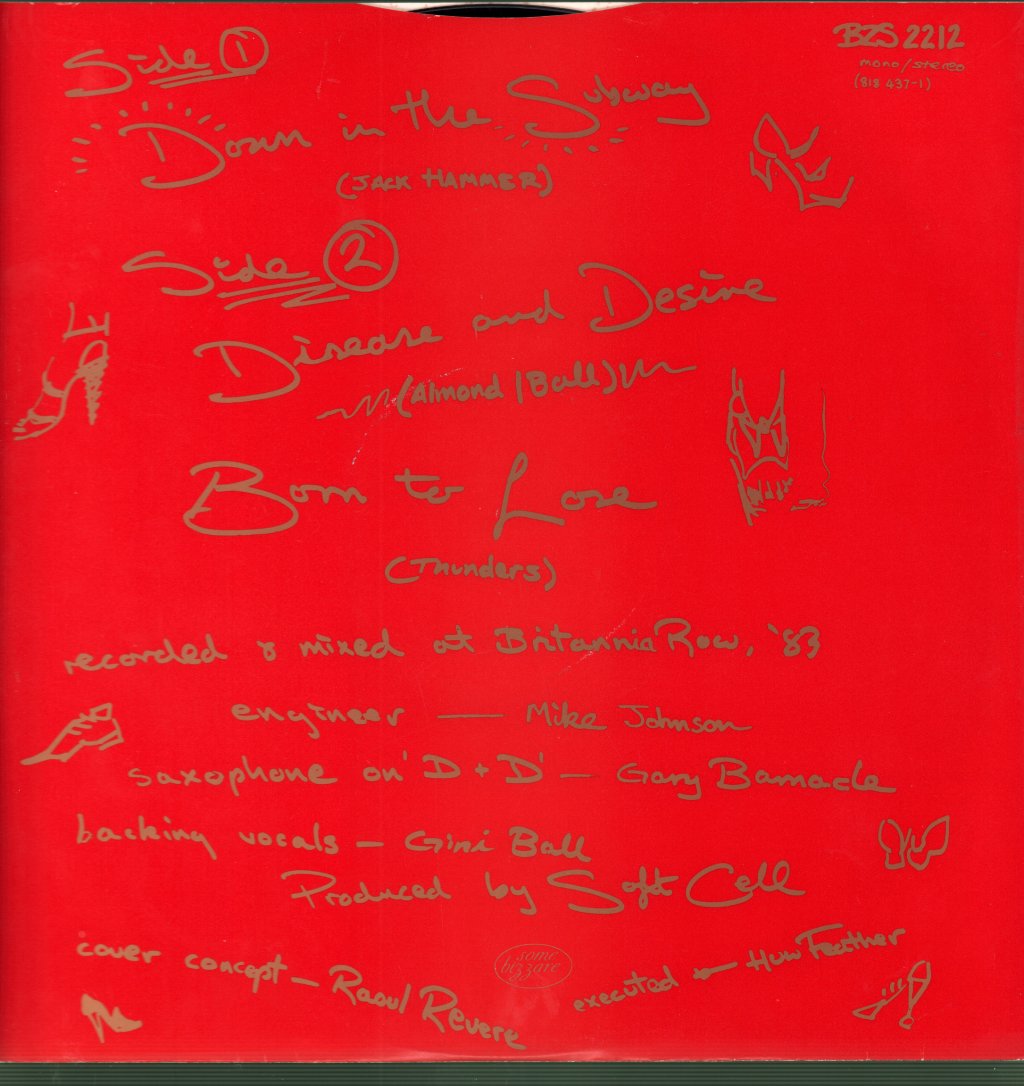 Side 1
BZS 2212
mono/stereo
(818 437-1)
Down in the Subway
(JACK HAMMER)
Side 2
Disease and Desire
(Almond/Ball)
Born to Lose
(Thunders)
recorded & mixed at Britannia Row, '83
engineer — Mike Johnson
saxophone on 'D + D' — Gary Barnacle
backing vocals — Gini Ball
Produced by Soft Cell
cover concept — Raoul Revere
some
bizzare
executed — Huw Feather